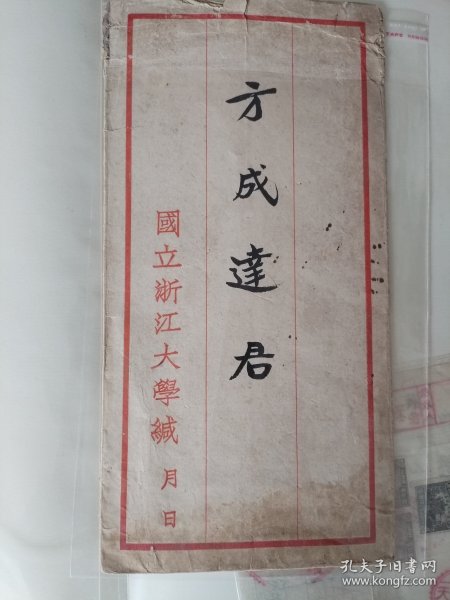 方成達君
國立浙江大學緘
月 日
孔夫子旧书网
www.kongfz.com